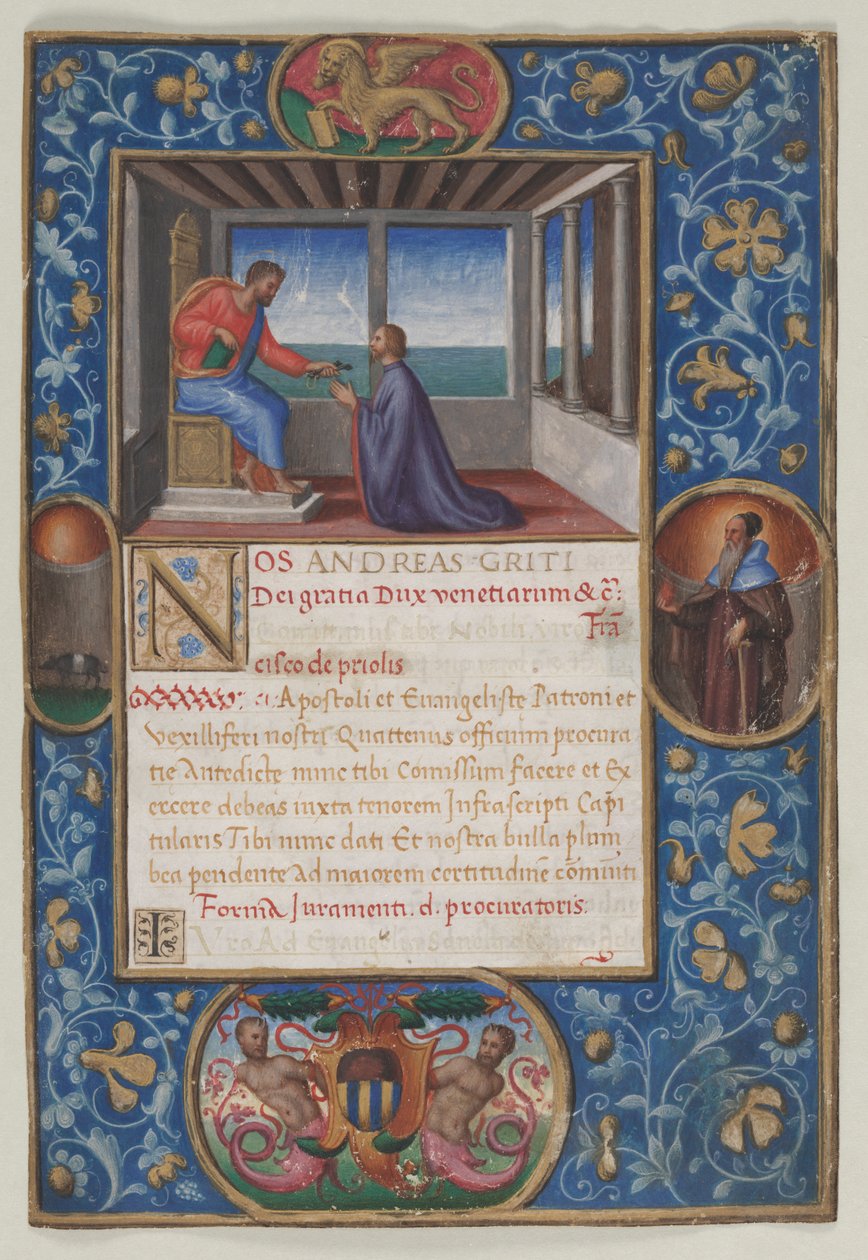 NOS ANDREAS GRITI
Dei gratia Dux venetiarum & c̃:
Frã
cisco de priolis
Apostoli et Euangelistę Patroni et
vexilliferi nostri Quattenus officium procura
tię Antedictę nunc tibi Comissum facere et Ex
ercere debeas iuxta tenorem Infrascripti Capi
tularis Tibi nunc dati Et nostra bulla plum
bea pendente Ad maiorem certitudinẽ cõmuniti
Forma Iuramenti. d. procuratoris.
IVro Ad Euangelia